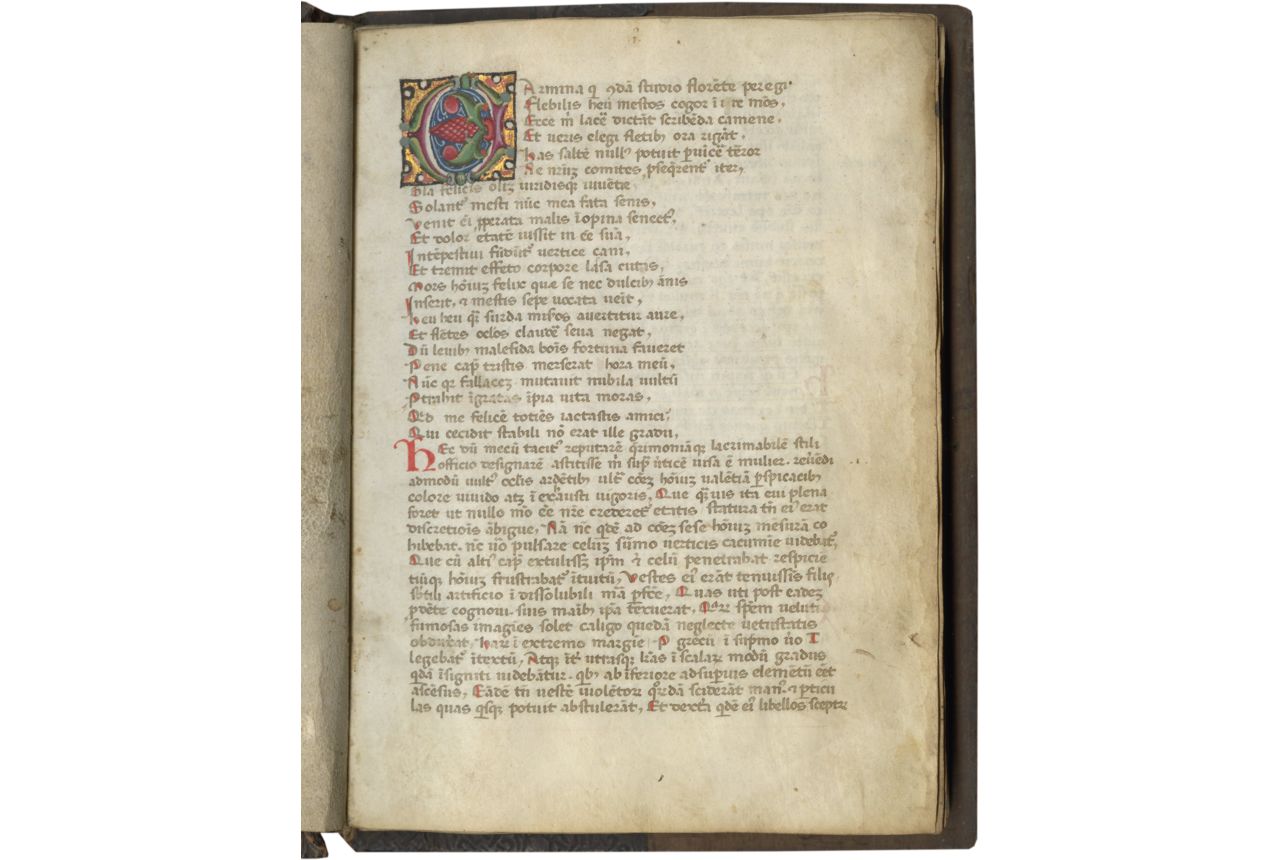 CArmina q̄ ꝯdā studio florēte peregi·
Flebilis heu mestos cogor īire mōs,
Ecce m̄ lacē dictāt scribēda camene,
Et ueris elegi fletibꝫ ora rigāt,
has saltē null' potuit ꝑuīcē tēror
Ne nr̄iꝫ comites ꝓseqrent' iter,
Gla felicis oliꝫ uiridisqꝫ iuuēte
Solant' mesti nūc mea fata senis,
Venit ēi ꝓꝑata malis īopina senect',
Et dolor etatē iussit in ee sua,
Intēpestiui fūdūt' uertice cani,
Et tremit effeto corpore lāsa cutis,
Mors hōiuꝫ felix que se nec dulcibꝫ ānis
Inserit, ⁊ mestis sepe uocata ueīt,
heu heu qr̄ surda mis̄os auertitur aure,
Et flētes oclos claudē seua negat,
Dū leuibꝫ malefida boīs fortuna faueret
Pene cap̄ tristis merserat hora meū,
Nūc qr fallaceꝫ mutauit nubila uultū
Ptrahit īgratas īpia uita moras,
Qd me felicē totiēs iactastis amici,
Qui cecidit stabili nō erat ille gradu,
hEc dū mecū tacit' reputarē q̄rimoniāqꝫ lacrimabilē stili
officio designarē astitisse m̄ sup̄ ūticē uisa ē mulier. reuēdi
admodū uult' oclis ardētibꝫ ult̄ cōeꝫ hōiuꝫ ualētiā ꝑspicacibꝫ
colore uiuido atqꝫ ī exausti uigoris, Que q̄uis ita eui plena
foret ut nullo mō ēe nr̄e crederet' etatis statura tn̄ ei' erat
discretiois ābigue, Nā nc̄ qdē ad cōeꝫ sese hōiuꝫ mesurā co
hibebat. nc̄ uō pulsare celuꝫ sūmo uerticis cacumie uidebat',
Que cū alti' cap̄ extulissꝫ ip̄m ⁊ celū penetrabat respicie
tiūqꝫ hōiuꝫ frustrabat' ītuitū, Vestes ei' erāt tenuissīs filis
sb̄tili artificio ī dissolubili mā ꝑfcē, Quas uti post eadeꝫ
ꝓdēte cognoui. suis maibꝫ ip̄a texuerat, Qar spēm ueluti
fumosas imagies solet caligo quedā neglecte uetustatis
obduxat, har ī extremo margie P grecū ī sup̄mo uō T
legebat' ītextū, Atqꝫ īt' utrasqꝫ lr̄as ī scalaꝝ modū gradus
qdā īsigniti uidebātur. qbꝫ ab īferiore ad superius elemētū eēt
ascēsus, Eādē tn̄ uestē uiolētoꝝ quordā sciderāt man'. ⁊ ꝑticu
las quas qisqꝫ potuit abstulerāt, Et dextᷓa qdē ei' libellos sceptꝝ